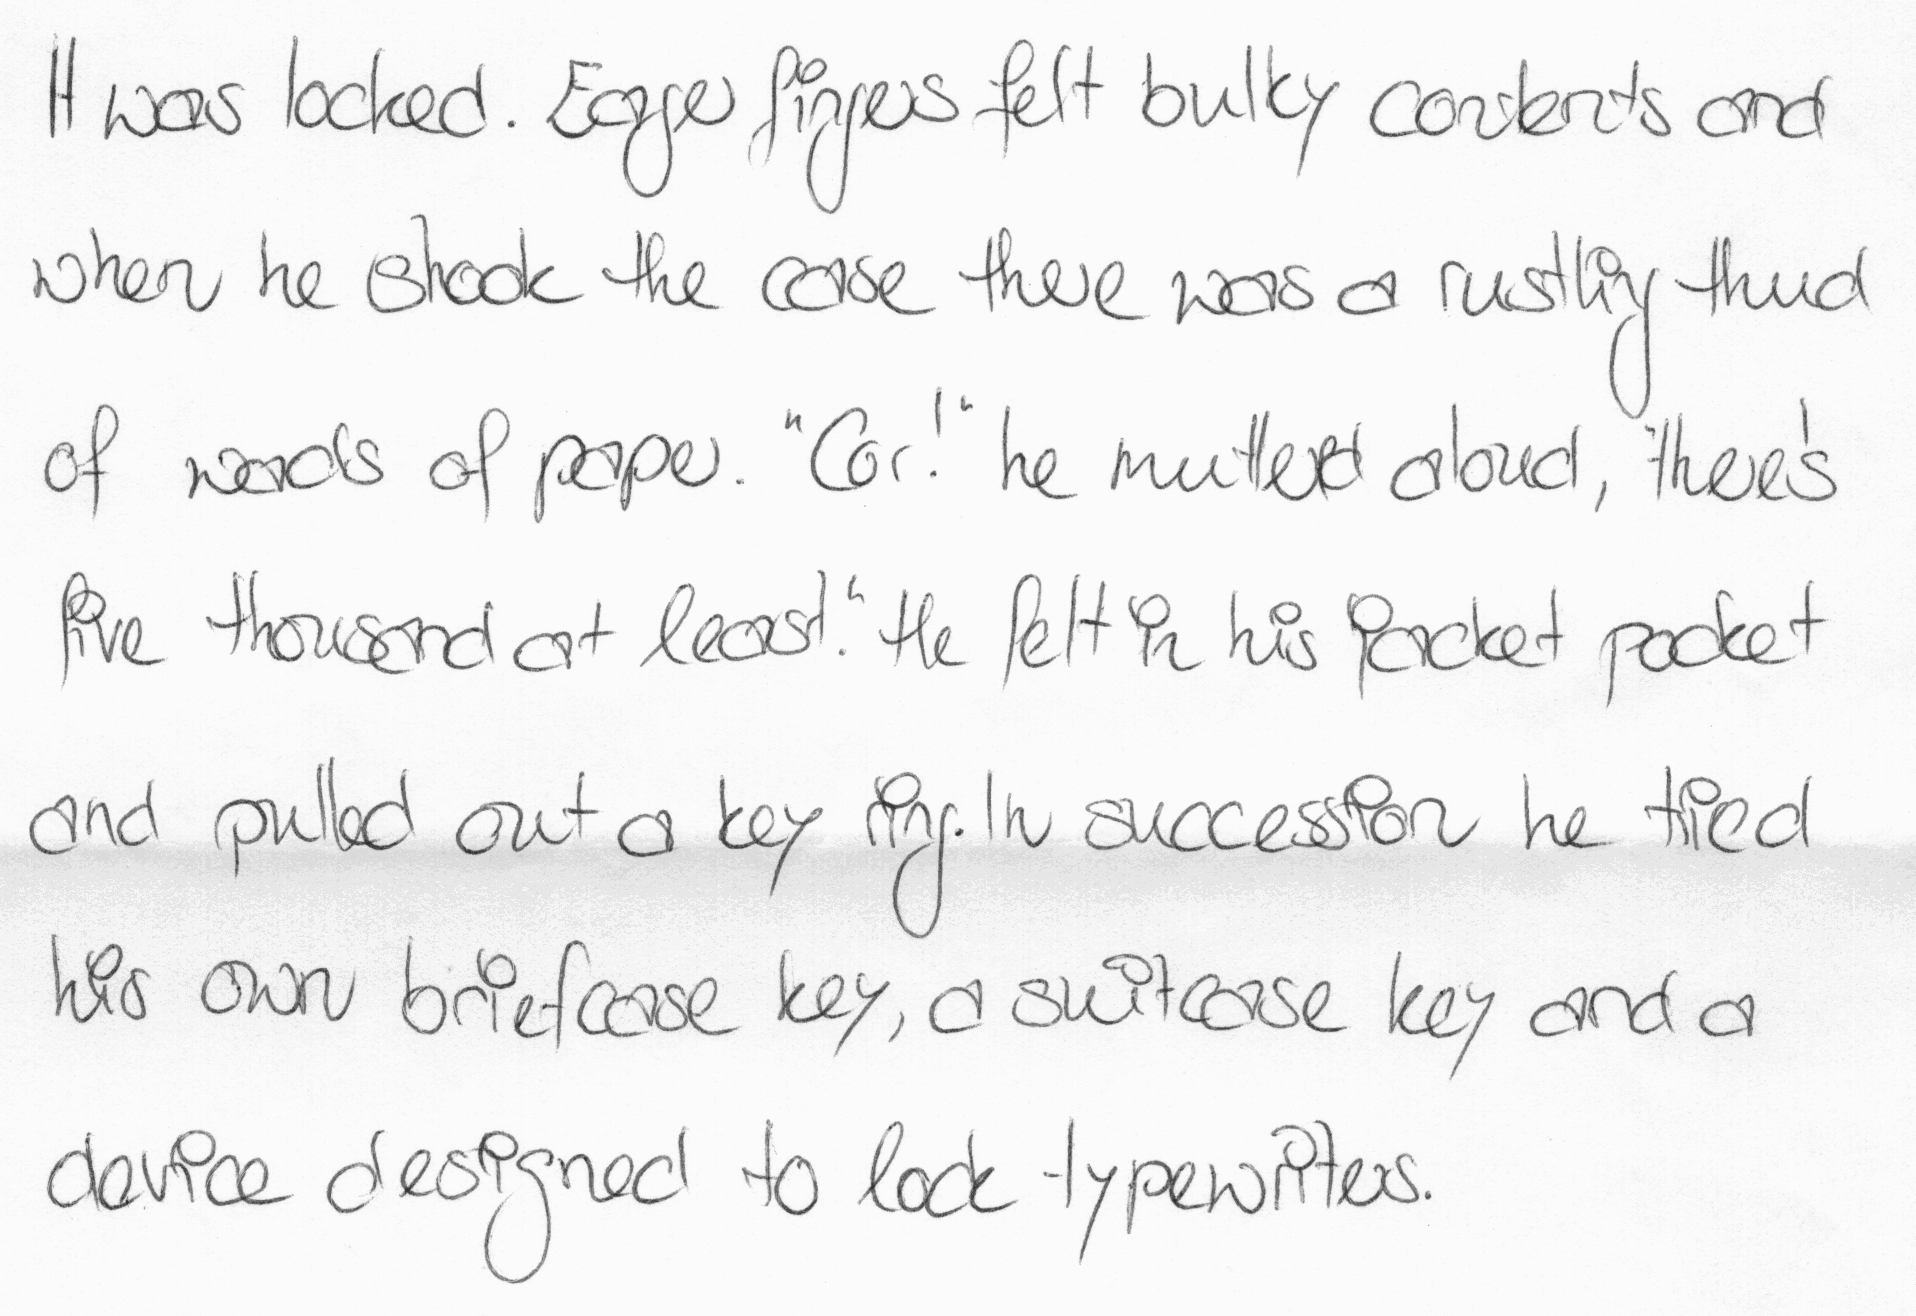 It was locked. Eager fingers felt bulky contents and
when he shook the case there was a rustling thud
of wards of paper. "Cor!" he muttered aloud, "there's
five thousand at least!" He felt in his jacket pocket
and pulled out a key ring. In succession he tried
his own briefcase key, a suitcase key and a
device designed to lock typewriters.